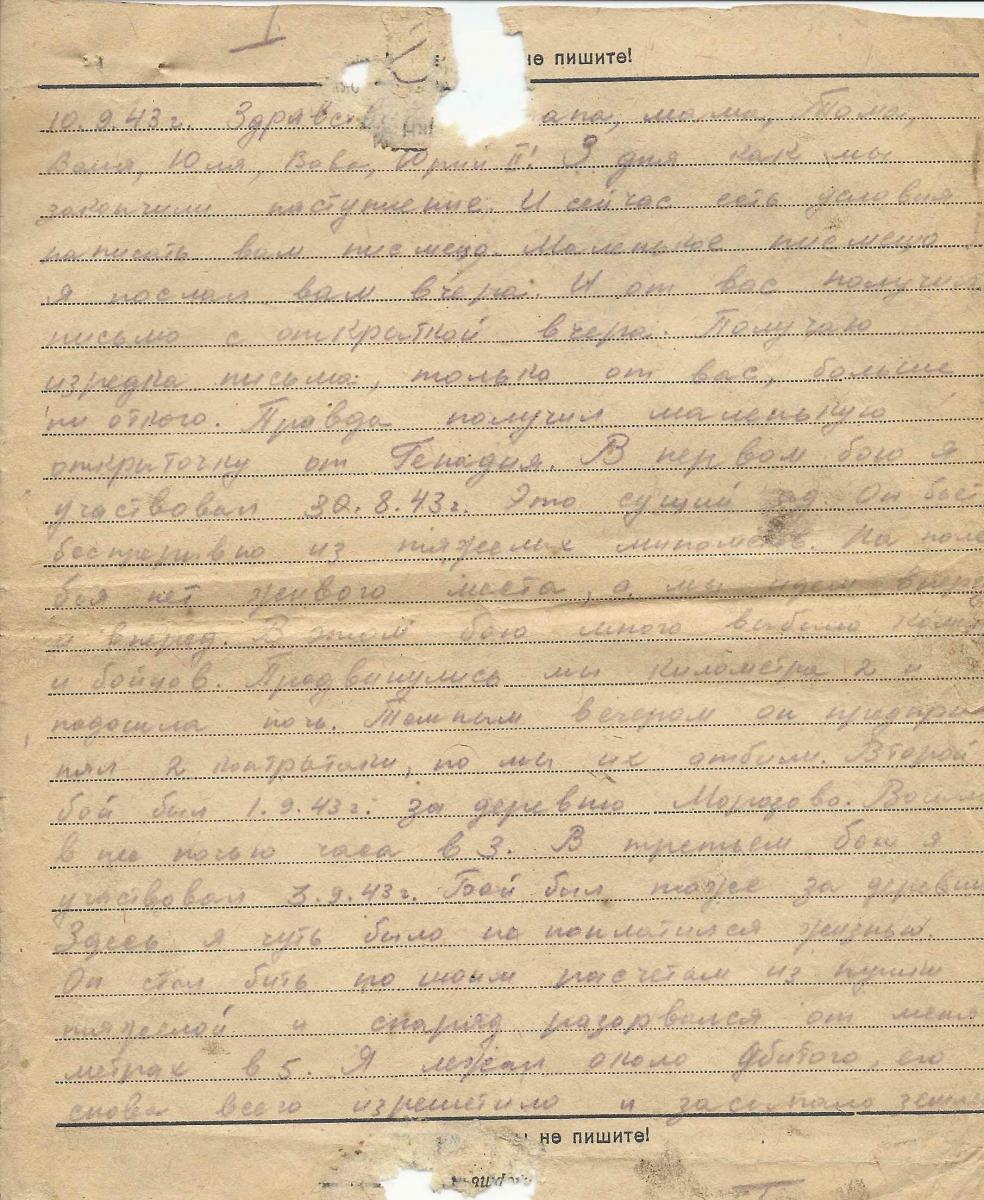 не пишите!
10.9.43 г. Здравст апа, мама, Тома,
Ваня, Юля, Вова, Юрий II! 3 дня как мы
закончили наступление. И сейчас есть условия
написать вам письмецо. Маленькое письмецо
я послал вам вчера. И от вас получил
письмо с открыткой вчера. Получаю
изредка письма, только от вас, больше
ни откого. Правда получил маленькую
открыточку от Генадия. В первом бою я
участвовал 30.8.43 г. Это сущий ад Он бьет
беспрерывно из тяжелых минометов. На поле
боя нет живого места, а мы идем вперед
и вперед. В этом бою много выбыло
и бойцов. Продвинулись мы километра 2 и
подошла ночь. Темным вечером он предпри
нял 2 контратаки, но мы их отбили. Второй
бой был 1.9.43 г. за деревню Морозово. Вошли
в нее ночью часа в 3. В третьем бою я
участвовал 3.9.43 г. Бой был тоже за деревню
Здесь я чуть было не поплатился жизнью.
Он стал бить по моим расчетам из пушки
тяжелой и снаряд разорвался от меня
метрах в 5. Я лежал около убитого, его
снова всего изрешетило и засыпало землей
не пишите!